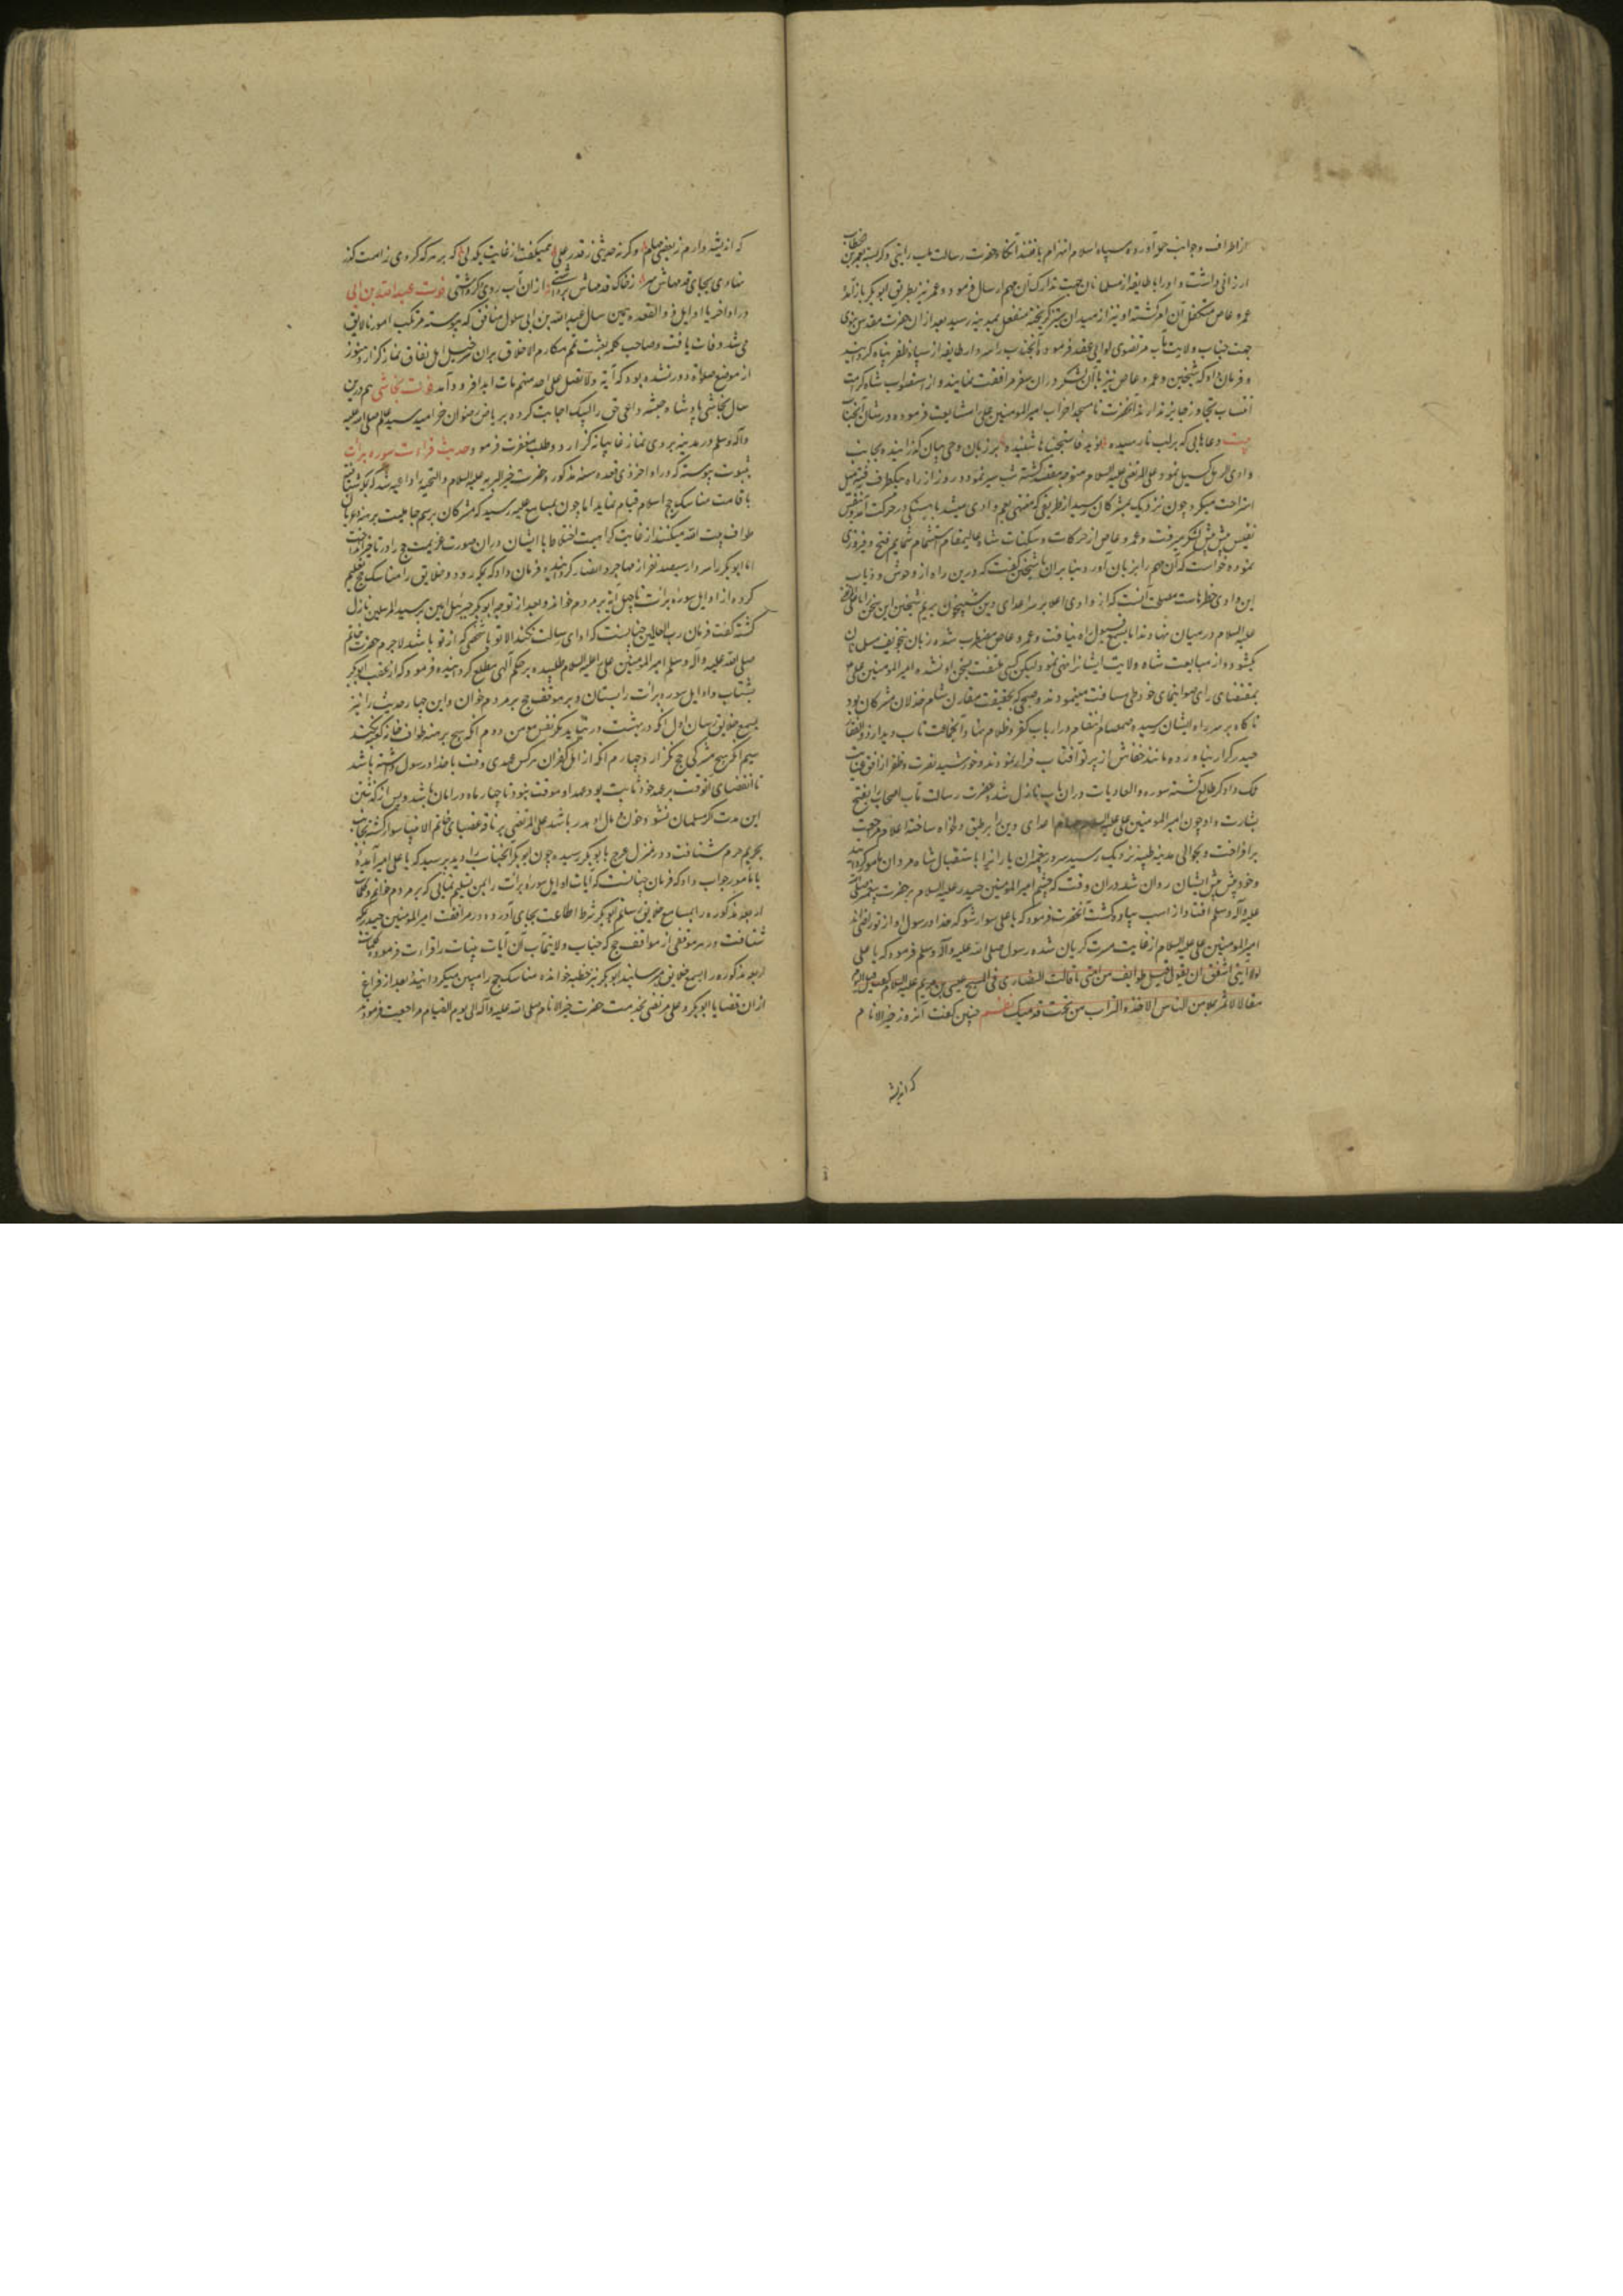 از اطراف و جوانب حمله آورده سپاه اسلام انهزام یافتند آنگاه حضرت رسالت مآب رایتی دیگر بسته بعمر بن خطاب
ارزانی داشت و او را با طایفه از مسلمانان جهت تدارک آن مهم ارسال فرمود و عمر نیز بطریق ابوبکر باز آمد
عمرو عاص متکفل آن امر گشته او نیز از میدان ستیز گریخته منفعل بمدینه رسید بعد از آن حضرت مقدس نبوی
جهت جناب ولایت مآب مرتضوی لوایی عقد فرموده آنجناب را سردار طایفه از سپاه ظفر پناه گردانید
و فرمان داد که شیخین و عمرو عاص نیز با آن لشکر در آن سفر مرافقت نمایند و از استصواب شاه کرامت
انتساب تجاوز جایز ندارند آنحضرت تا مسجد احزاب امیر المومنین علی را مشایعت فرموده و در شان آنجناب
بیت دعاهایی که بر لب نارسیده نوید فاستجبنا ها شنیده بر زبان وحی بیان گذرانیده بجانب
وادی الرمل گسیل نمود علی المرتضی علیه السلام متوجه مقصد گشته شب سیر نمود و روز از راه بیکطرف
استراحت میکرد چون نزدیک بمشرکان رسید از طریقی که مفضی بفم وادی میشد باهستگی در حرکت آمد و بنفس
نفیس پیش پیش لشکر میرفت و عمرو عاص از حرکات و سکنات شاه عالیمقام استشمام شمایم فتح و فیروزی
نموده خواست که آن مهم را بزیان آورد بنا بر آن با شیخین گفت که درین راه از وحوش و ذیاب
این وادی خطرهاست مصلحت آنست که از وادی اعلا بر سر اعدای دین شبیخون بریم شیخین این سخن را با علی مرتضی
علیه السلام در میان نهادند اما بسمع قبول راه نیافت و عمرو عاص مضطرب شده زبان بتخویف مسلمانان
بگشود و از متابعت شاه ولایت ایشانرا نهی نمود لیکن کسی ملتفت بسخن او نشده امیر المومنین علی
بمقتضای رای صوابنمای خود طی مسافت مینمودند و صبحی که بحقیقت مقارن شام خذلان مشرکان بود
ناگاه بر سر راه ایشان رسیده صمصام انتقام در ارباب کفر و ظلام نهاد آنجماعت تاب دیدار ذو الفقار
حیدر کرار نیاورده مانند خفاش از پرتو آفتاب فرار نمودند و خورشید نصرت و ظفر از افق عنایت
ملک دادگر طالع گشته سوره والعادیات در آن باب نازل شد و حضرت رسالت مآب اصحاب را بفتح
بشارت داد و چون امیر المومنین علی علیه السلام اعدای دین را بر طبق دلخواه ساخته اعلام مراجعت
برافراخت و بحوالی مدینه طیبه نزدیک رسید سرور پیغمبران یارانرا باستقبال شاه مردان مامور گردانید
و خود پیش پیش ایشان روان شد در آن وقت که چشم امیر المومنین حیدر علیه السلام بر حضرت پیغمبر صلی الله
علیه وآله وسلم افتاد از اسب پیاده گشت آنحضرت فرمود که یا علی سوار شو که خدا و رسول او از تو راضی اند
امیر المومنین علی علیه السلام از غایت مسرت گریان شده رسول صلی الله علیه وآله وسلم فرمود که یا علی
لولا اننی اشفق ان یقول فیک طوایف من امتی ما قالت النصاری فی المسیح عیسی بن مریم علیه السلام لقلت فیک الیوم
مقالا لا تمر بملا من الناس الا اخذوا التراب من تحت قدمیک نظم چنین گفت آنروز خیر الانام
که اندیشه
که اندیشه دارم ز بعضی و گرنه حدیثی ز قدر علی همیگفتم از غایت یکدلی که بر هر که کردی ز امت گذر
نهادی بجای قدمهاش سر ز خاک قدمهاش برداشتی از آن آب روی دگر داشتی فوت عبدالله بن ابی
در اواخر یا اوایل ذو القعده همین سال عبد الله بن ابی سلول منافق که پیوسته مرتکب امور نالایق
می شد وفات یافت و صاحب کلمه بعثت لاتمم مکارم الاخلاق بر آن سرخیل اهل نفاق نماز گزارد هنوز
از موضع صلاة دور نشده بود که آیه ولا تصل علی احد منهم مات ابدا فرود آمد فوت نجاشی هم درین
سال نجاشی پادشاه حبشه داعی حق را لبیک اجابت کرده بریاض رضوان خرامید سید عالم صلی الله علیه
وآله وسلم در مدینه بر وی نماز غایبانه گزارد و طلب مغفرت فرمود حدیث قراءت سوره برات
بثبوت پیوسته که در اواخر ذی قعده سنه مذکور حضرت خیر البریه علیه السلام والتحیه را داعیه شد که بمکه شتافته
باقامت مناسک حج اسلام قیام نماید اما چون بمسامع علیه رسید که مشرکان برسم جاهلیت برهنه و عریان
طواف بیت الله میکنند از غایت کراهیت اختلاط با ایشان در آن صورت عزیمت حج را در تاخیر انداخت
اما ابوبکر را سردار سیصد نفر از مهاجر و انصار گردانید و فرمان داد که بمکه رود و خلایق را مناسک حج تعلیم
کرده از اوایل سوره برات تا چهل آیه بر مردم خواند و بعد از توجه ابوبکر جبرئیل امین بر سید المرسلین نازل
گشته گفت فرمان رب العالمین چنانست که ادای رسالت نکند الا تو یا شخصی که از تو باشد لاجرم حضرت خاتم
صلی الله علیه وآله وسلم امیر المومنین علی را علیه السلام طلبیده بر حکم الهی مطلع گردانیده فرمود که از عقب ابوبکر
بشتاب و اوایل سوره برات را بستان و بر موقف حج بر مردم خوان و این چهار حدیث را نیز
بسمع خلایق رسان اول آنکه در بهشت در نیاید مگر نفس مومن دوم آنکه هیچ برهنه طواف خانه کعبه نکند
سیم آنکه هیچ مشرکی حج نگزارد چهارم آنکه از اهل کفران هر کس عهدی موقت با خدا و رسول داشته باشد
تا انقضای آنوقت بر عهد خود ثابت بود و عهد او موقت نبود تا چهار ماه در امان باشد و پس از گذشتن
این مدت اگر مسلمان نشود خون و مال او هدر باشد علی المرتضی بر ناقه عضبای خاتم الانبیا سوار گشته بجانب
بحریم حرم شتافت و در منزل عرج بابوبکر رسیده چون ابوبکر آنجناب را دید پرسید که یا علی امیر آمدۀ
یا مامور جواب داد که فرمان چنانست که آیات اوایل سوره برات را بمن تسلیم نمایی که بر مردم خوانم و کلمات
اربعه مذکوره را بمسامع خلایق رسانم ابوبکر شرط اطاعت بجای آورده و در مرافقت امیر المومنین حیدر بمکه
شتافت و در هر موقفی از مواقف حج که جناب ولایتمآب آن آیات بینات را قراءت فرمود و کلمات
اربعه مذکوره را بسمع خلایق میرسانید ابوبکر نیز خطبه خوانده مناسک حج را مبین میگردانید و بعد از فراغ
از آن قضایا ابوبکر و علی مرتضی بخدمت حضرت خیر الانام صلی الله علیه وآله الی یوم القیام مراجعت فرمودند